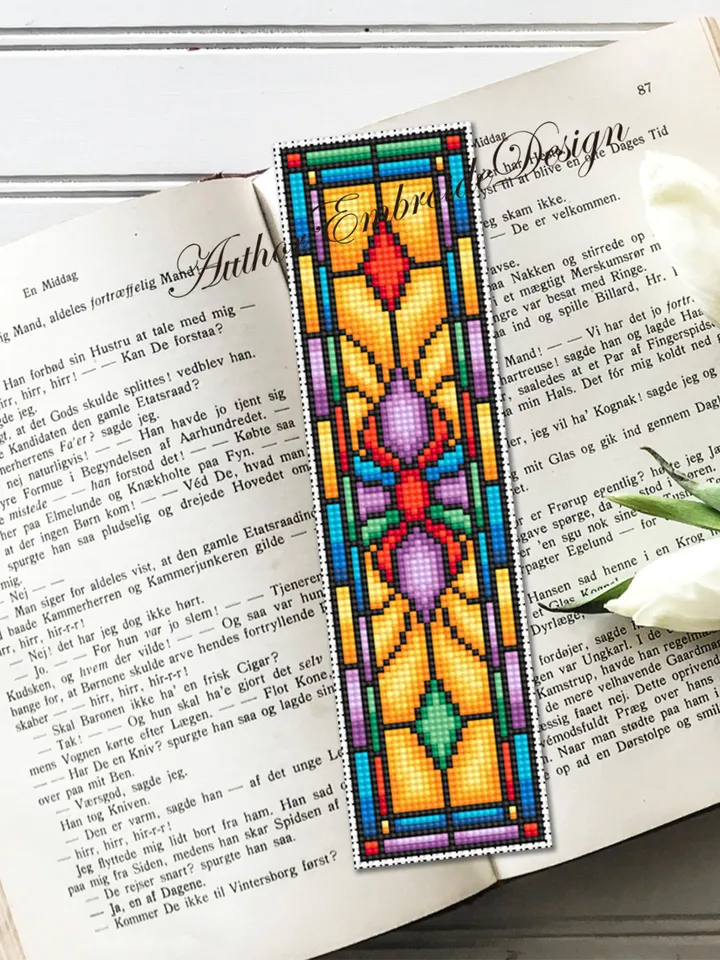 En Middag
ig Mand, aldeles fortræffelig Mand
Han forbød sin Hustru at tale med mig —
irr, hirr, hirr! — — Kan De forstaa?
gt, at det Gods skulde splittes! vedblev han.
e Kandidaten den gamle Etatsraad?
merherrens Fa'er? sagde jeg.
nej naturligvis! — — Han havde jo tjent sig
yre Formue i Begyndelsen af Aarhundredet. —
mistede — — han forstod det! — — Købte saa
her paa Elmelunde og Knækholte paa Fyn. — —
at der ingen Børn kom! — — Véd De, hvad man
spurgte han saa pludselig og drejede Hovedet om
mig.
— Nej — —
— Man siger for aldeles vist, at den gamle Etatsraadin
baade Kammerherren og Kammerjunkeren gilde —
irr, hirr, hir-r-r!
— Nej! det har jeg dog ikke hørt.
— Jo. — — For hun var jo slem! — — Tjeneren
Kudsken, og hvem der vilde! — — Og saa var hun
bange for, at Børnene skulde arve hendes fortryllende
skaber — — hirr, hirr, hir-r-r!
— Skal Baronen ikke ha' en frisk Cigar?
— Tak! — — Og hun skal ha'e gjort det selv
mens Vognen kørte efter Lægen. — — Flot Kone.
— — Har De en Kniv? spurgte han saa og lagde sin
over paa mit Ben.
— Værsgod, sagde jeg.
Han tog Kniven.
— Den er varm, sagde han — af det unge
— hirr, hir-r-r!
Jeg flyttede mig lidt bort fra ham. Han sad
paa mig fra Siden, medens han skar Spidsen af
— De rejser snart? spurgte han saa.
— Ja, en af Dagene.
— Kommer De ikke til Vintersborg først?
Author EmbroideDesign
87
Middag
at blive en one Dages Tid
eg skam ikke.
— De er velkommen.
avse.
paa Nakken og stirrede op
i et mægtigt Merskumsrør
ngre var besat med Ringe.
aa ind og spille Billard, Hr.
Mand! — — Vi har det jo fortr
hartreuse! sagde han og lagde
, saaledes at et Par af Fingerspids
min Hals. Det fór mig koldt ned
er, jeg vil ha' Kognak! sagde jeg og
g mit Glas og gik ind gennem Dag
er Frørup egentlig? hørte jeg
gave spørge, da
er 'en sgu nok sine Tusk
pagter Egelund — for
Hansen sad henne i en Krog
et Glas
Dyrlæge
fordøjer, sagde
gen var Ungkarl. I de
Kamstrup, havde han regelmæ
de mere velhavende Gaardma
essig faaet nej. Dette oprivend
vémodsfuldt Præg over hans
Naar man stødte paa ham
e op ad en Dørstolpe og smil